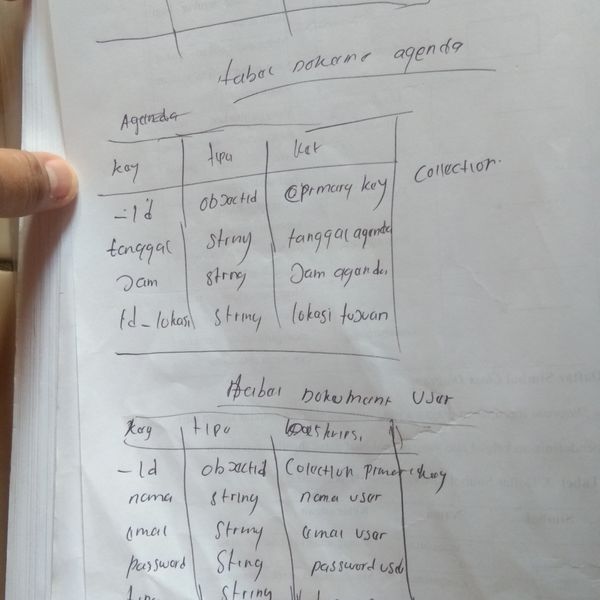 tabel Dokume agenda
Agenda
key tipe ket
_Id objectid primary key Collection.
tanggal string tanggal agenda
Jam string Jam agenda
Id_lokasi string lokasi tujuan
tabel Dokument user
key tipe Deskripsi
_Id objectid Colection primary key
nama string nama user
email string email user
password Sting password user
string